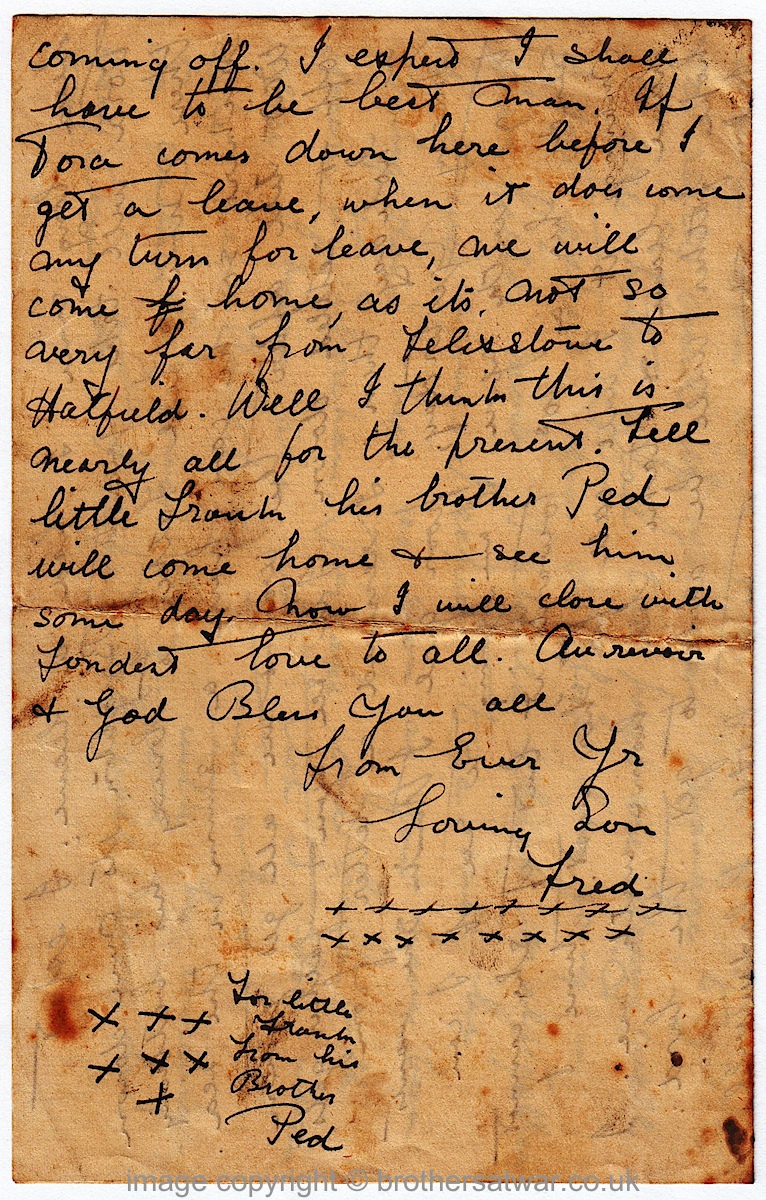 coming off. I expect I shall
have to be best man. If
Dora comes down here before I
get a leave, when it does come
my turn for leave, we will
come home, as its, not so
very far from Felixstowe to
Hatfield. Well I think this is
nearly all for the present. Tell
little Frank his brother Ped
will come home & see him
some day. Now I will close with
fondest love to all. Au revoir
& God Bless You all
from Ever Yr
Loving Son
Fred
+ + + + + + + + +
x x x x x x x x
For little
x x x Frank
from his
x x x Brother
x
Ped
image copyright © brothersatwar.co.uk